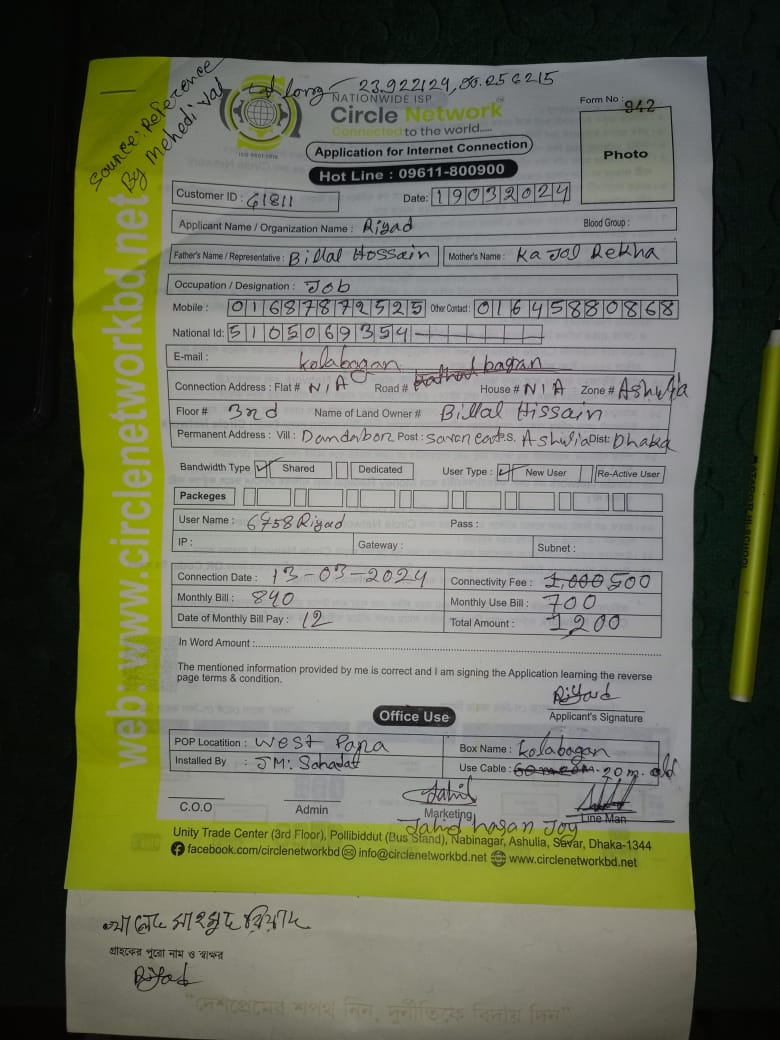 Source: Reference
By Mehedi Vai
long - 23.922124, 90.256215
NATIONWIDE ISP
Circle Network
Connected to the world.....
Form No : 942
Application for Internet Connection
Photo
Hot Line : 09611-800900
Customer ID : 61811 Date: 19032024
Applicant Name / Organization Name : Riyad Blood Group :
Father's Name / Representative : Billal Hossain Mother's Name : Kajol Rekha
Occupation / Designation : Job
Mobile : 01687872525 Other Contact : 01645880868
National Id: 5105069354
E-mail :
Connection Address : Flat # N/A Road # kolabagan House # N/A Zone # Ashulia
Floor # 3rd Name of Land Owner # Billal Hissain
Permanent Address : Vill : Dandabor Post : Savar cant P.S. Ashulia Dist: Dhaka
Bandwidth Type Shared Dedicated User Type : New User Re-Active User
Packeges
User Name : 6758Riyad Pass :
IP : Gateway : Subnet :
Connection Date : 13-03-2024 Connectivity Fee : 1,000 500
Monthly Bill : 840 Monthly Use Bill : 700
Date of Monthly Bill Pay : 12 Total Amount : 1,200
In Word Amount :
The mentioned information provided by me is correct and I am signing the Application learning the reverse
page terms & condition.
Riyad
Applicant's Signature
Office Use
POP Locatition : West Para Box Name : Kolabagan
Installed By : JM: Sahadat Use Cable : 20 m. old
Jahid
C.O.O Admin Marketing Line Man
Jahid hasan Joy
Unity Trade Center (3rd Floor), Pollibiddut (Bus Stand), Nabinagar, Ashulia, Savar, Dhaka-1344
facebook.com/circlenetworkbd info@circlenetworkbd.net www.circlenetworkbd.net
web: www.circlenetworkbd.net
মাহমুদ রিয়াদ
গ্রাহকের পুরো নাম ও স্বাক্ষর
Riyad
"দেশপ্রেমের শপথ নিন, দুর্নীতিকে বিদায় দিন"